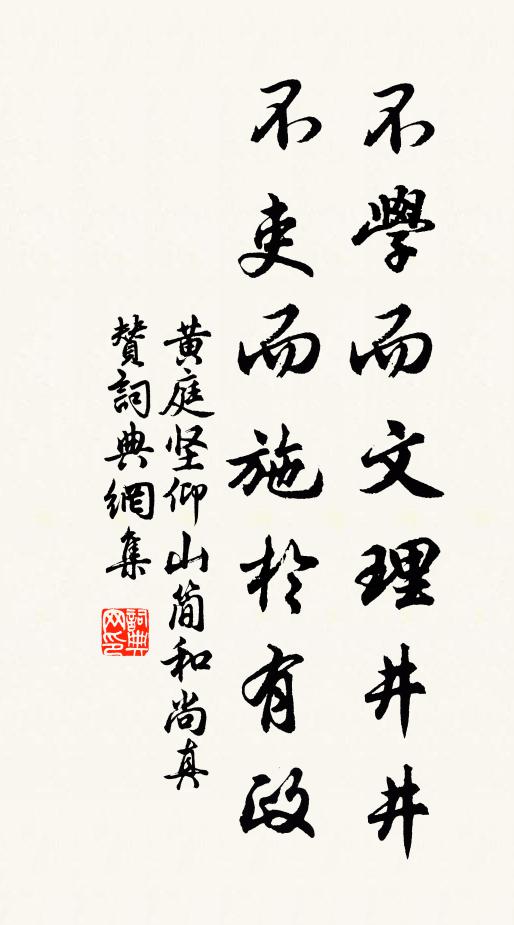 不學而文理井井
不吏而施於有政
黄庭坚仰山简和尚真
贊詞典網集
詞典
网印